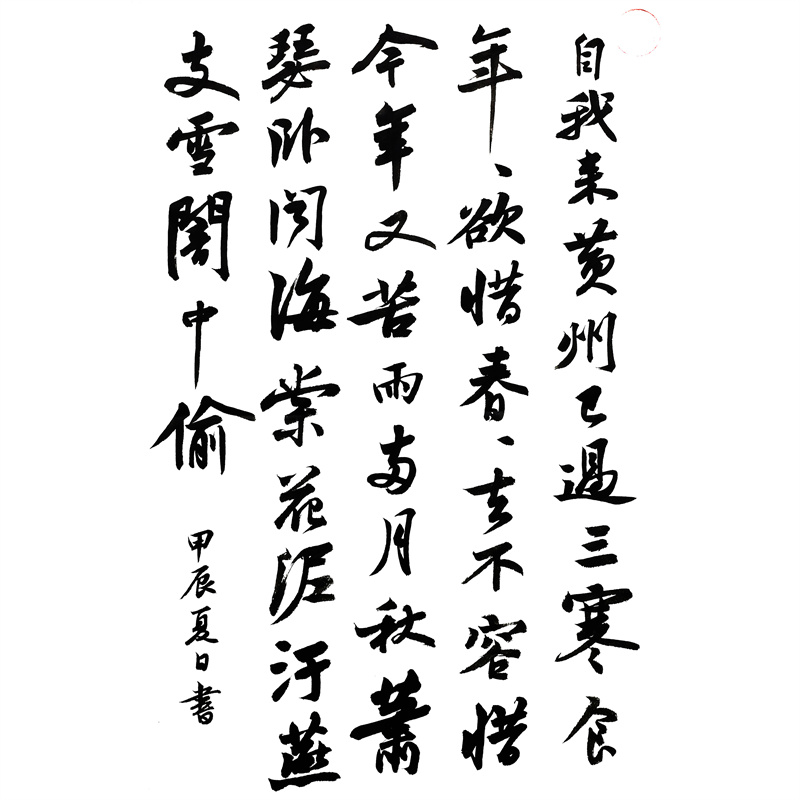 自我来黄州已過三寒食
年、欲惜春、去不容惜
今年又苦雨兩月秋蕭
瑟卧闻海棠花泥汙燕
支雪闇中偷
甲辰夏日書